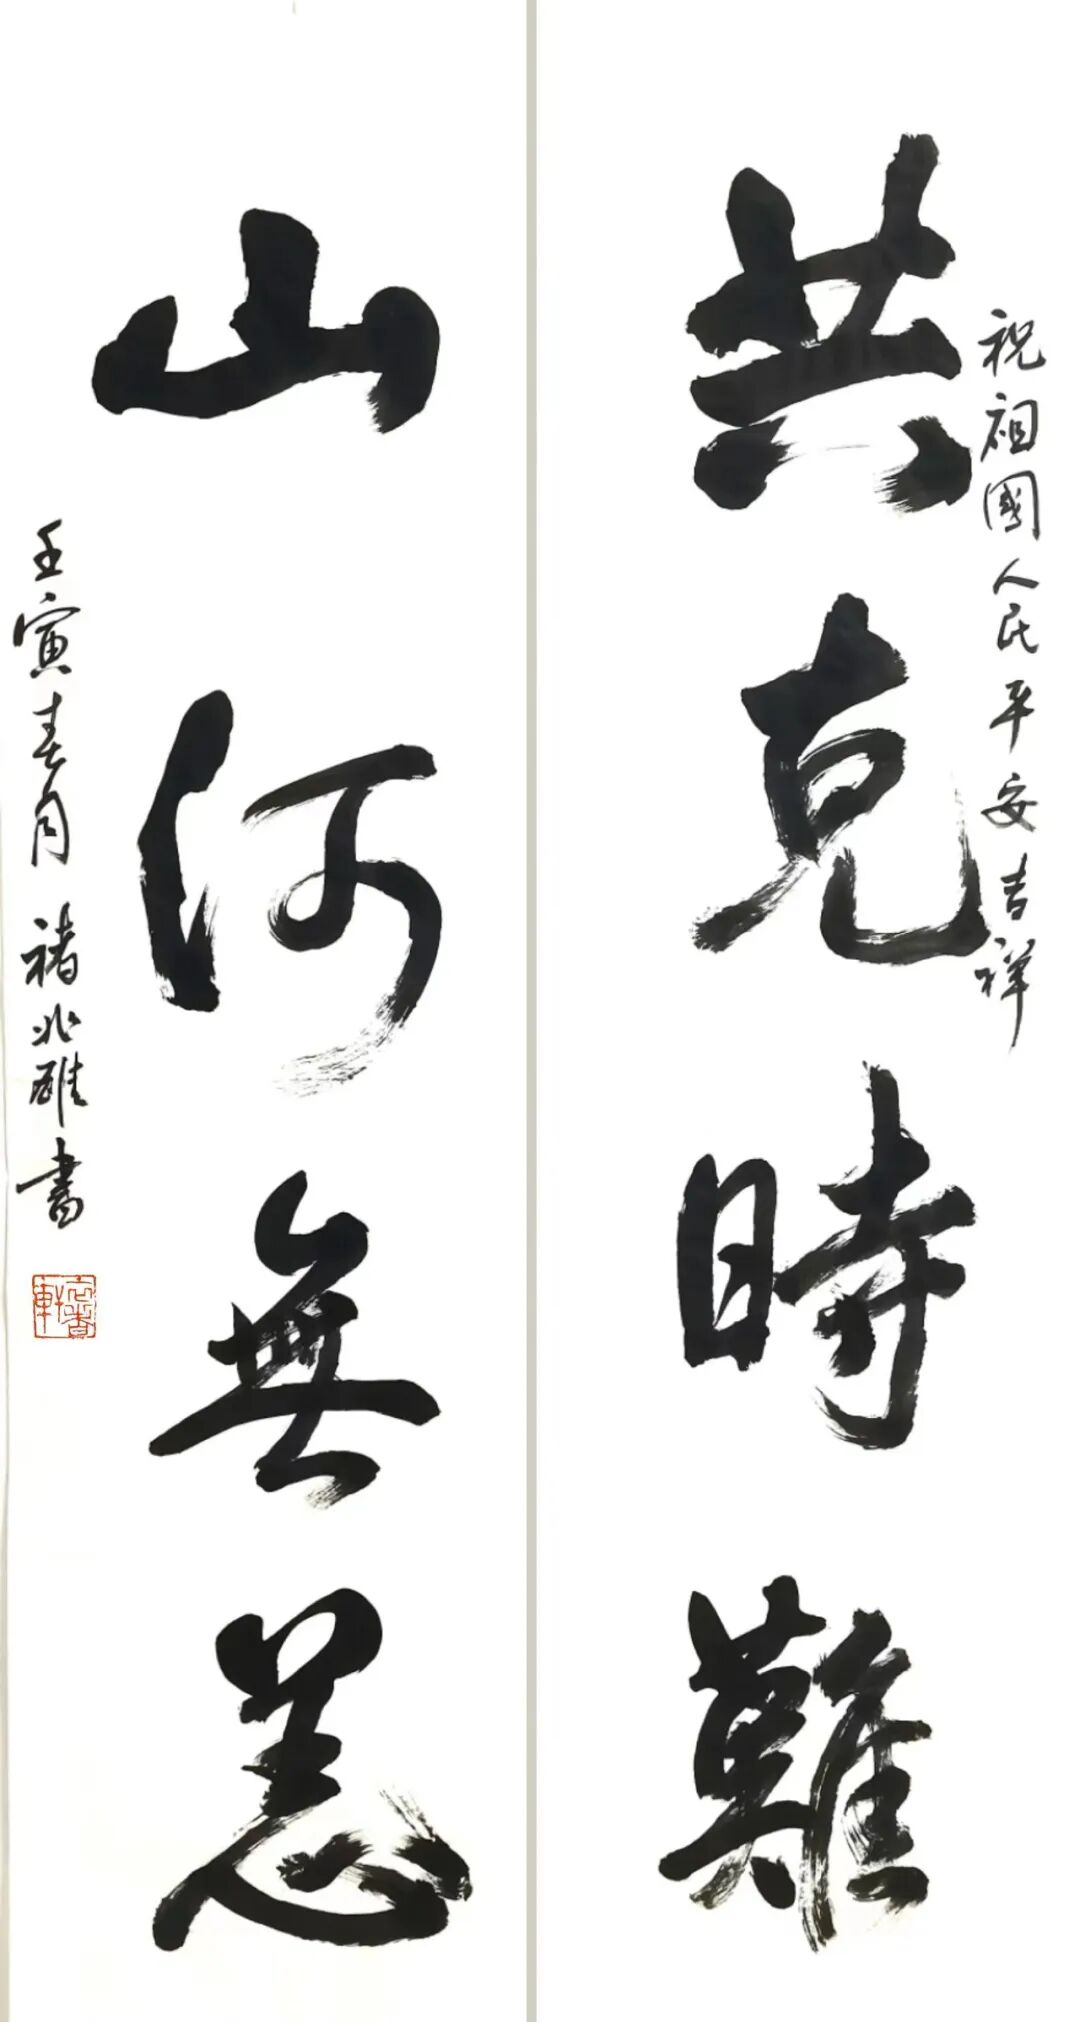 祝祖國人民平安吉祥
共克時難
山河無恙
壬寅春月 褚兆雄書